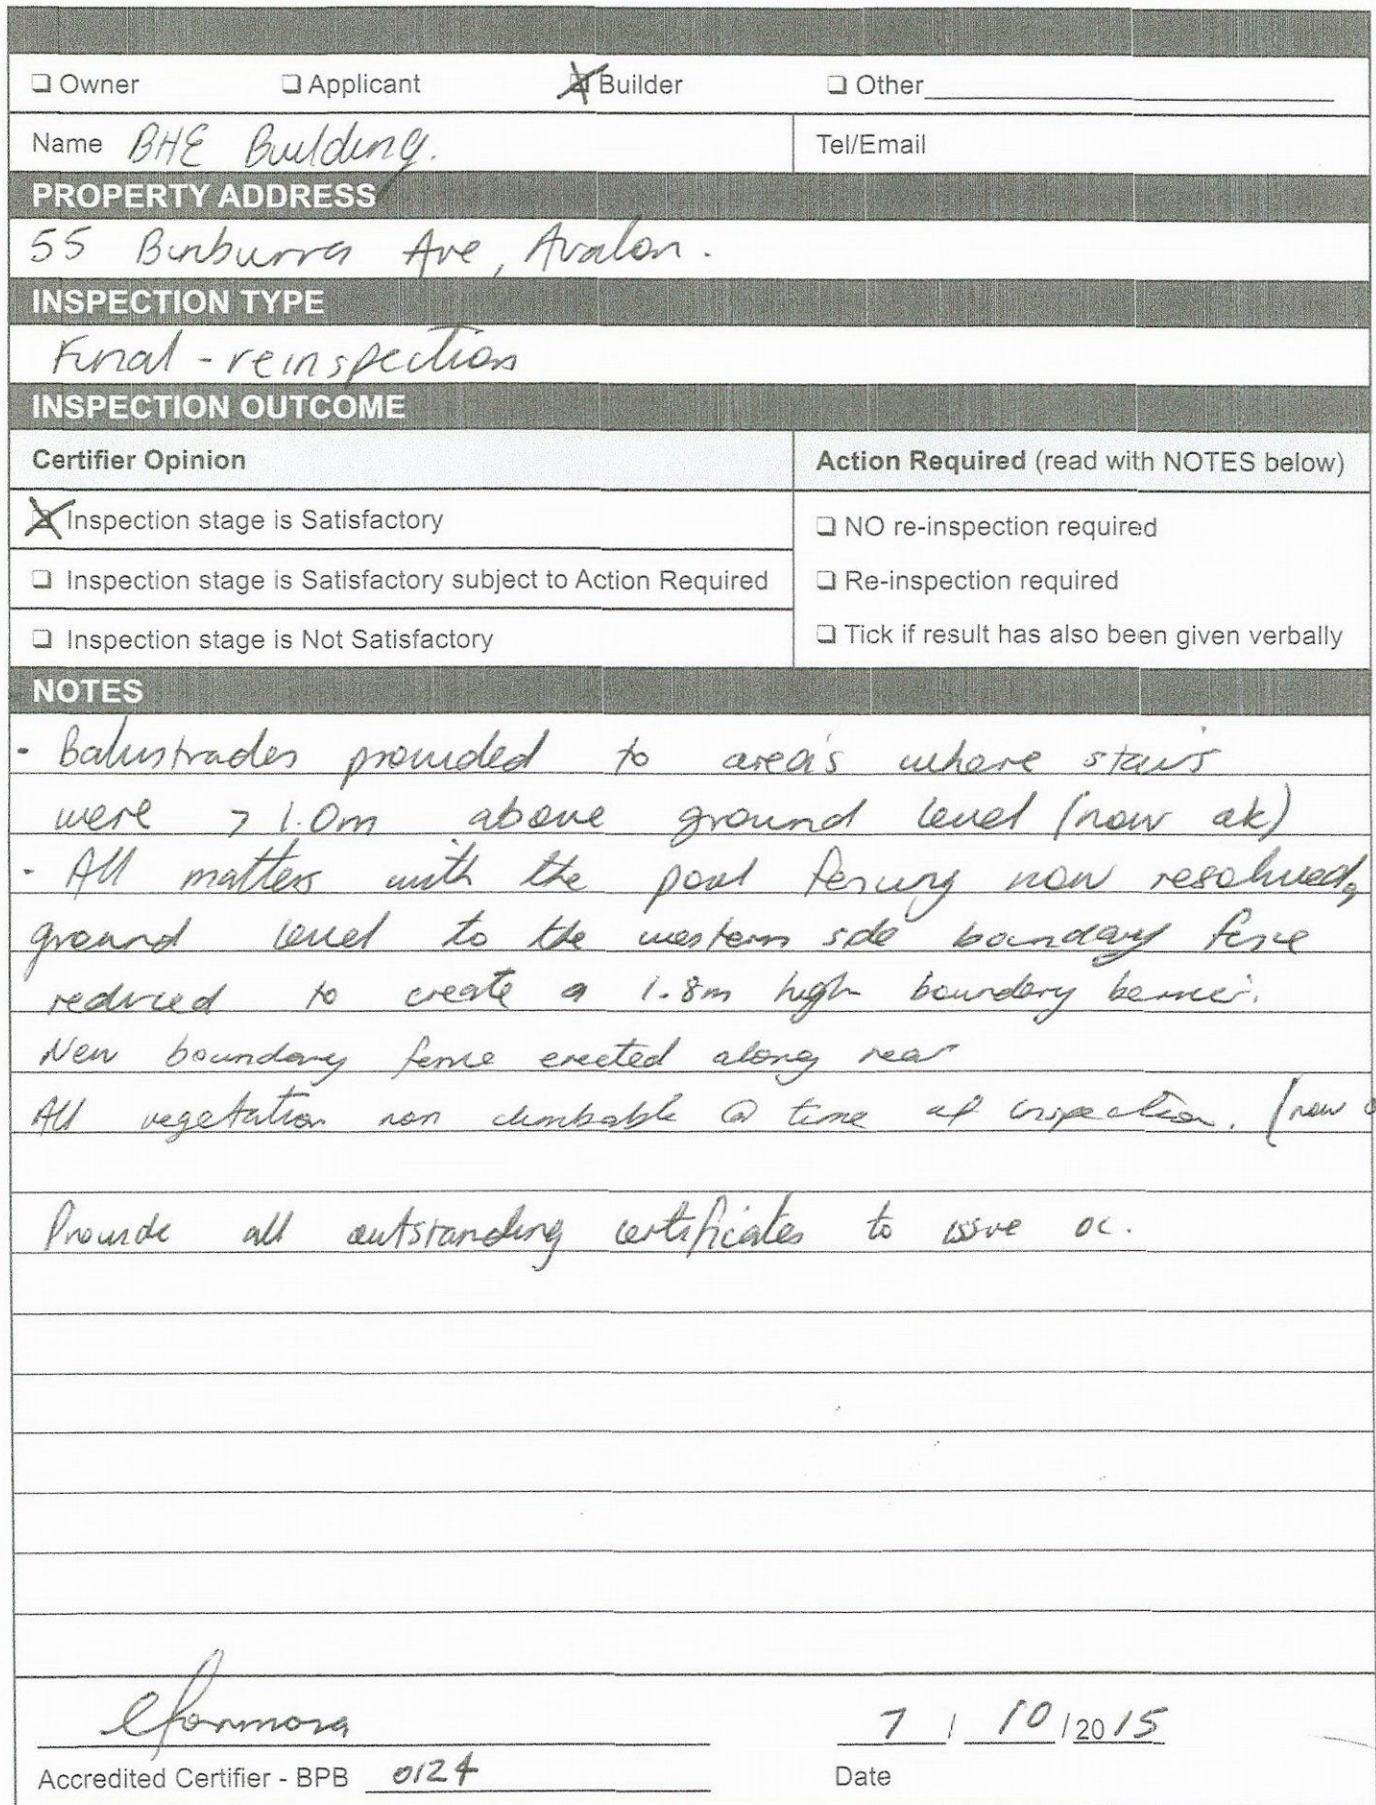 ❑ Owner ❑ Applicant ☒ Builder ❑ Other
Name BHE Building. Tel/Email
PROPERTY ADDRESS
55 Binburra Ave, Avalon.
INSPECTION TYPE
Final - reinspection
INSPECTION OUTCOME
Certifier Opinion Action Required (read with NOTES below)
☒ Inspection stage is Satisfactory ❑ NO re-inspection required
❑ Inspection stage is Satisfactory subject to Action Required ❑ Re-inspection required
❑ Inspection stage is Not Satisfactory ❑ Tick if result has also been given verbally
NOTES
- Balustrades provided to area's where stairs
were > 1.0m above ground level (now ok)
- All matters with the pool fencing now resolved,
ground level to the western side boundary fence
reduced to create a 1.8m high boundary barrier.
New boundary fence erected along rear
All vegetation non climbable @ time of inspection. (now
Provide all outstanding certificates to issue oc.
Accredited Certifier - BPB 0124
7 / 10 / 2015
Date